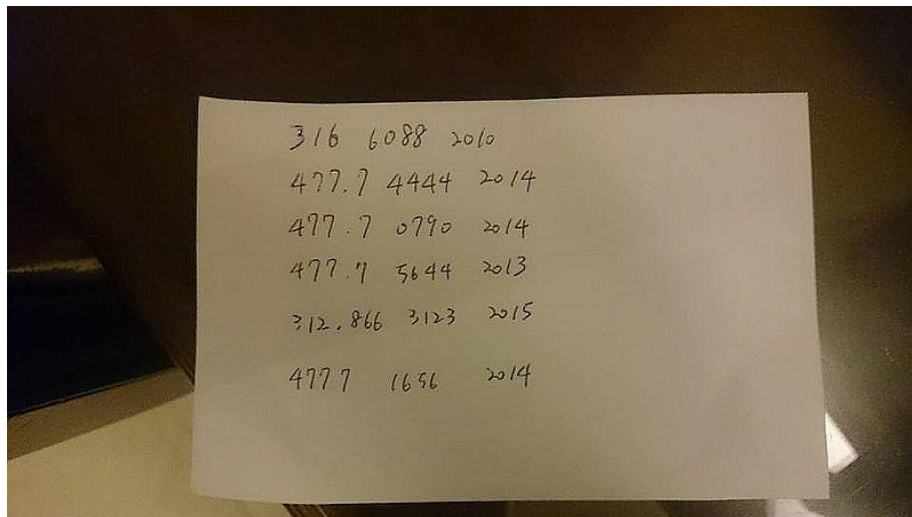 316 6088 2010
477.7 4444 2014
477.7 0790 2014
477.7 5644 2013
312.866 3123 2015
4777 1656 2014